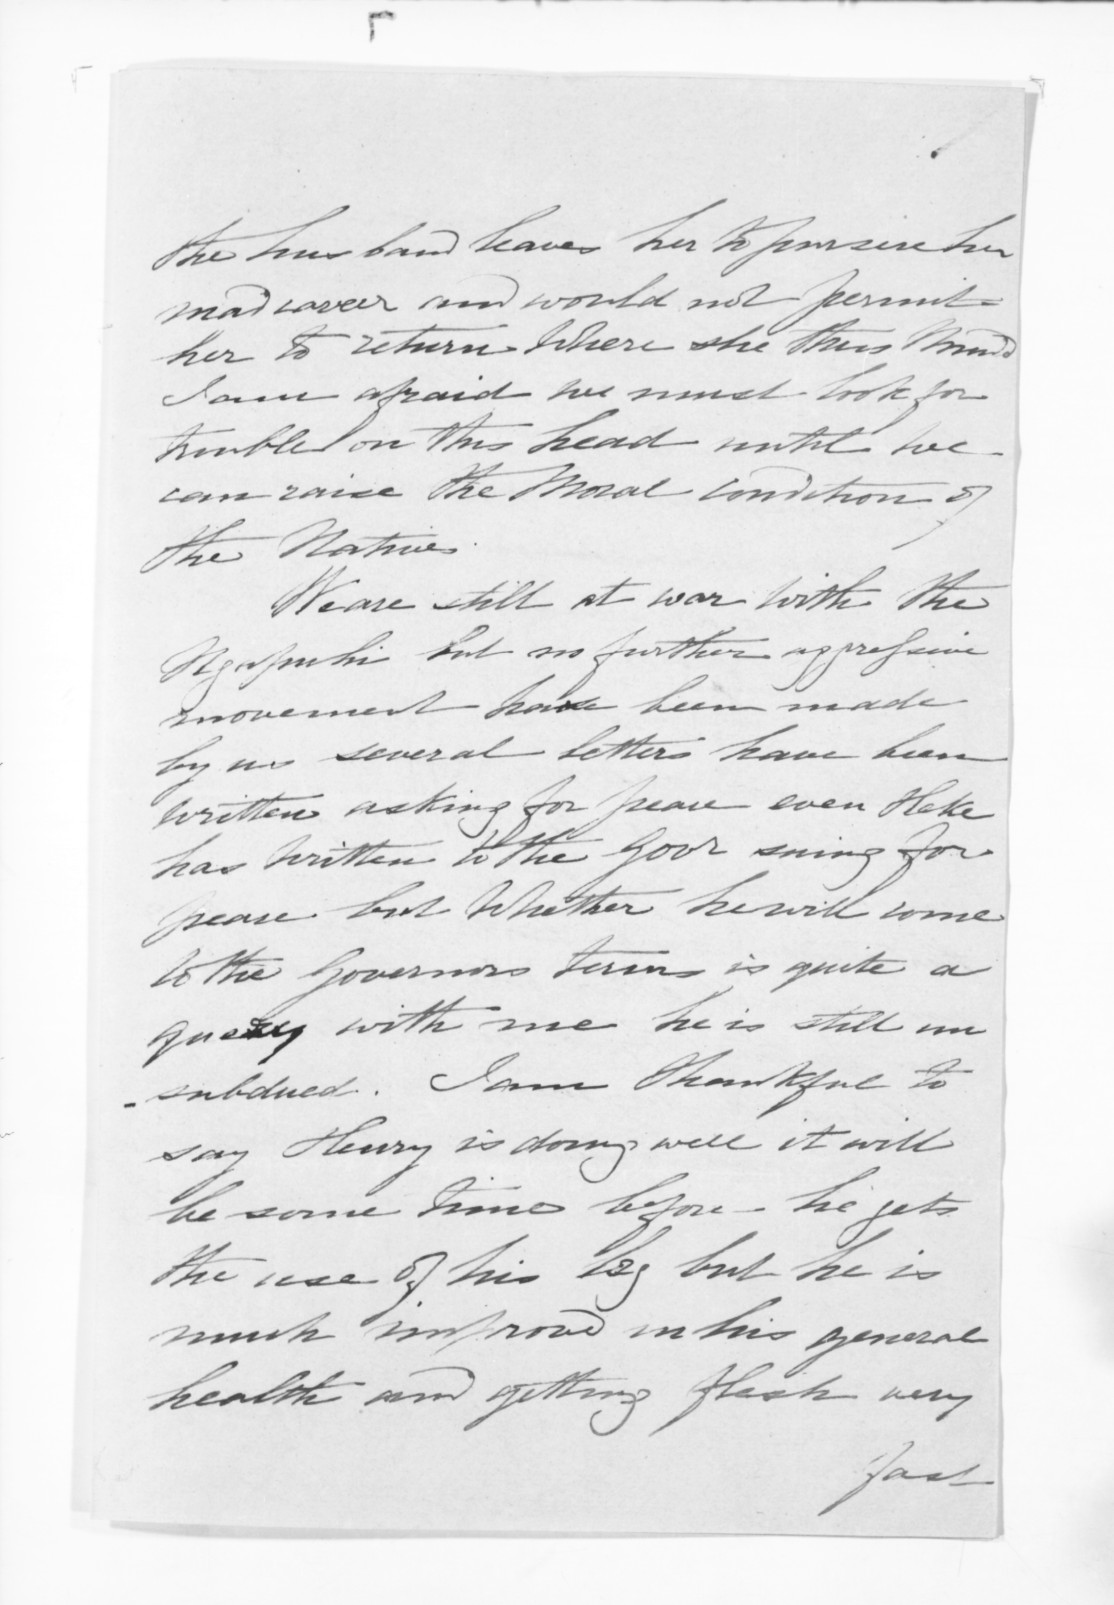 the husband leaves her to pursue her
mad career and would not permit
her to return where she thus
I am afraid we must look for
trouble on this head until we
can raise the Moral condition of
the Natives.
We are still at war with the
Ngapuhi but no further aggressive
movement have been made
by us several letters have been
written asking for peace even Heke
has written to the Govr suing for
peace but Whether he will come
to the Governors terms is quite a
query with me he is still un
-subdued. I am thankful to
say Henry is doing well it will
be some time before he gets
the use of his leg but he is
much improvd in his general
health and getting flesh very
fast